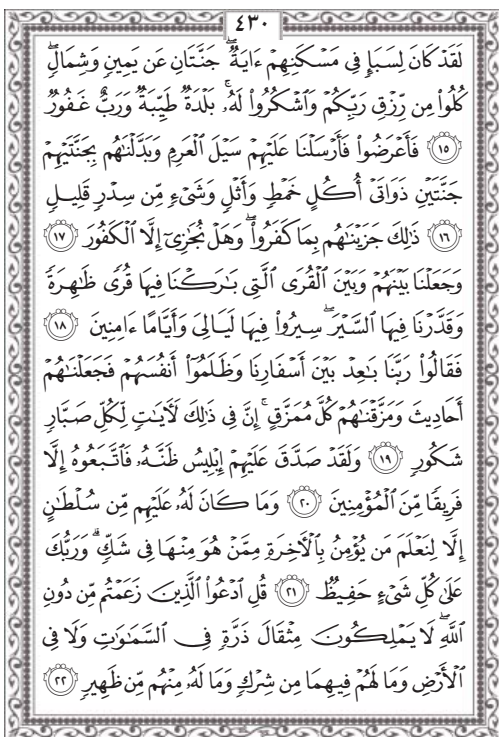 ٤٣٠
لَقَدْ كَانَ لِسَبَإٍ فِي مَسْكَنِهِمْ ءَايَةٌ ۖ جَنَّتَانِ عَن يَمِينٍ وَشِمَالٍ ۖ
كُلُوا۟ مِن رِّزْقِ رَبِّكُمْ وَٱشْكُرُوا۟ لَهُۥ ۚ بَلْدَةٌ طَيِّبَةٌ وَرَبٌّ غَفُورٌ
١٥ فَأَعْرَضُوا۟ فَأَرْسَلْنَا عَلَيْهِمْ سَيْلَ ٱلْعَرِمِ وَبَدَّلْنَٰهُم بِجَنَّتَيْهِمْ
جَنَّتَيْنِ ذَوَاتَىْ أُكُلٍ خَمْطٍ وَأَثْلٍ وَشَىْءٍ مِّن سِدْرٍ قَلِيلٍ
١٦ ذَٰلِكَ جَزَيْنَٰهُم بِمَا كَفَرُوا۟ ۖ وَهَلْ نُجَٰزِىٓ إِلَّا ٱلْكَفُورَ ١٧
وَجَعَلْنَا بَيْنَهُمْ وَبَيْنَ ٱلْقُرَى ٱلَّتِى بَٰرَكْنَا فِيهَا قُرًى ظَٰهِرَةً
وَقَدَّرْنَا فِيهَا ٱلسَّيْرَ ۖ سِيرُوا۟ فِيهَا لَيَالِىَ وَأَيَّامًا ءَامِنِينَ ١٨
فَقَالُوا۟ رَبَّنَا بَٰعِدْ بَيْنَ أَسْفَارِنَا وَظَلَمُوٓا۟ أَنفُسَهُمْ فَجَعَلْنَٰهُمْ
أَحَادِيثَ وَمَزَّقْنَٰهُمْ كُلَّ مُمَزَّقٍ ۚ إِنَّ فِى ذَٰلِكَ لَءَايَٰتٍ لِّكُلِّ صَبَّارٍ
شَكُورٍ ١٩ وَلَقَدْ صَدَّقَ عَلَيْهِمْ إِبْلِيسُ ظَنَّهُۥ فَٱتَّبَعُوهُ إِلَّا
فَرِيقًا مِّنَ ٱلْمُؤْمِنِينَ ٢٠ وَمَا كَانَ لَهُۥ عَلَيْهِم مِّن سُلْطَٰنٍ
إِلَّا لِنَعْلَمَ مَن يُؤْمِنُ بِٱلْءَاخِرَةِ مِمَّنْ هُوَ مِنْهَا فِى شَكٍّ ۗ وَرَبُّكَ
عَلَىٰ كُلِّ شَىْءٍ حَفِيظٌ ٢١ قُلِ ٱدْعُوا۟ ٱلَّذِينَ زَعَمْتُم مِّن دُونِ
ٱللَّهِ ۖ لَا يَمْلِكُونَ مِثْقَالَ ذَرَّةٍ فِى ٱلسَّمَٰوَٰتِ وَلَا فِى
ٱلْأَرْضِ وَمَا لَهُمْ فِيهِمَا مِن شِرْكٍ وَمَا لَهُۥ مِنْهُم مِّن ظَهِيرٍ ٢٢